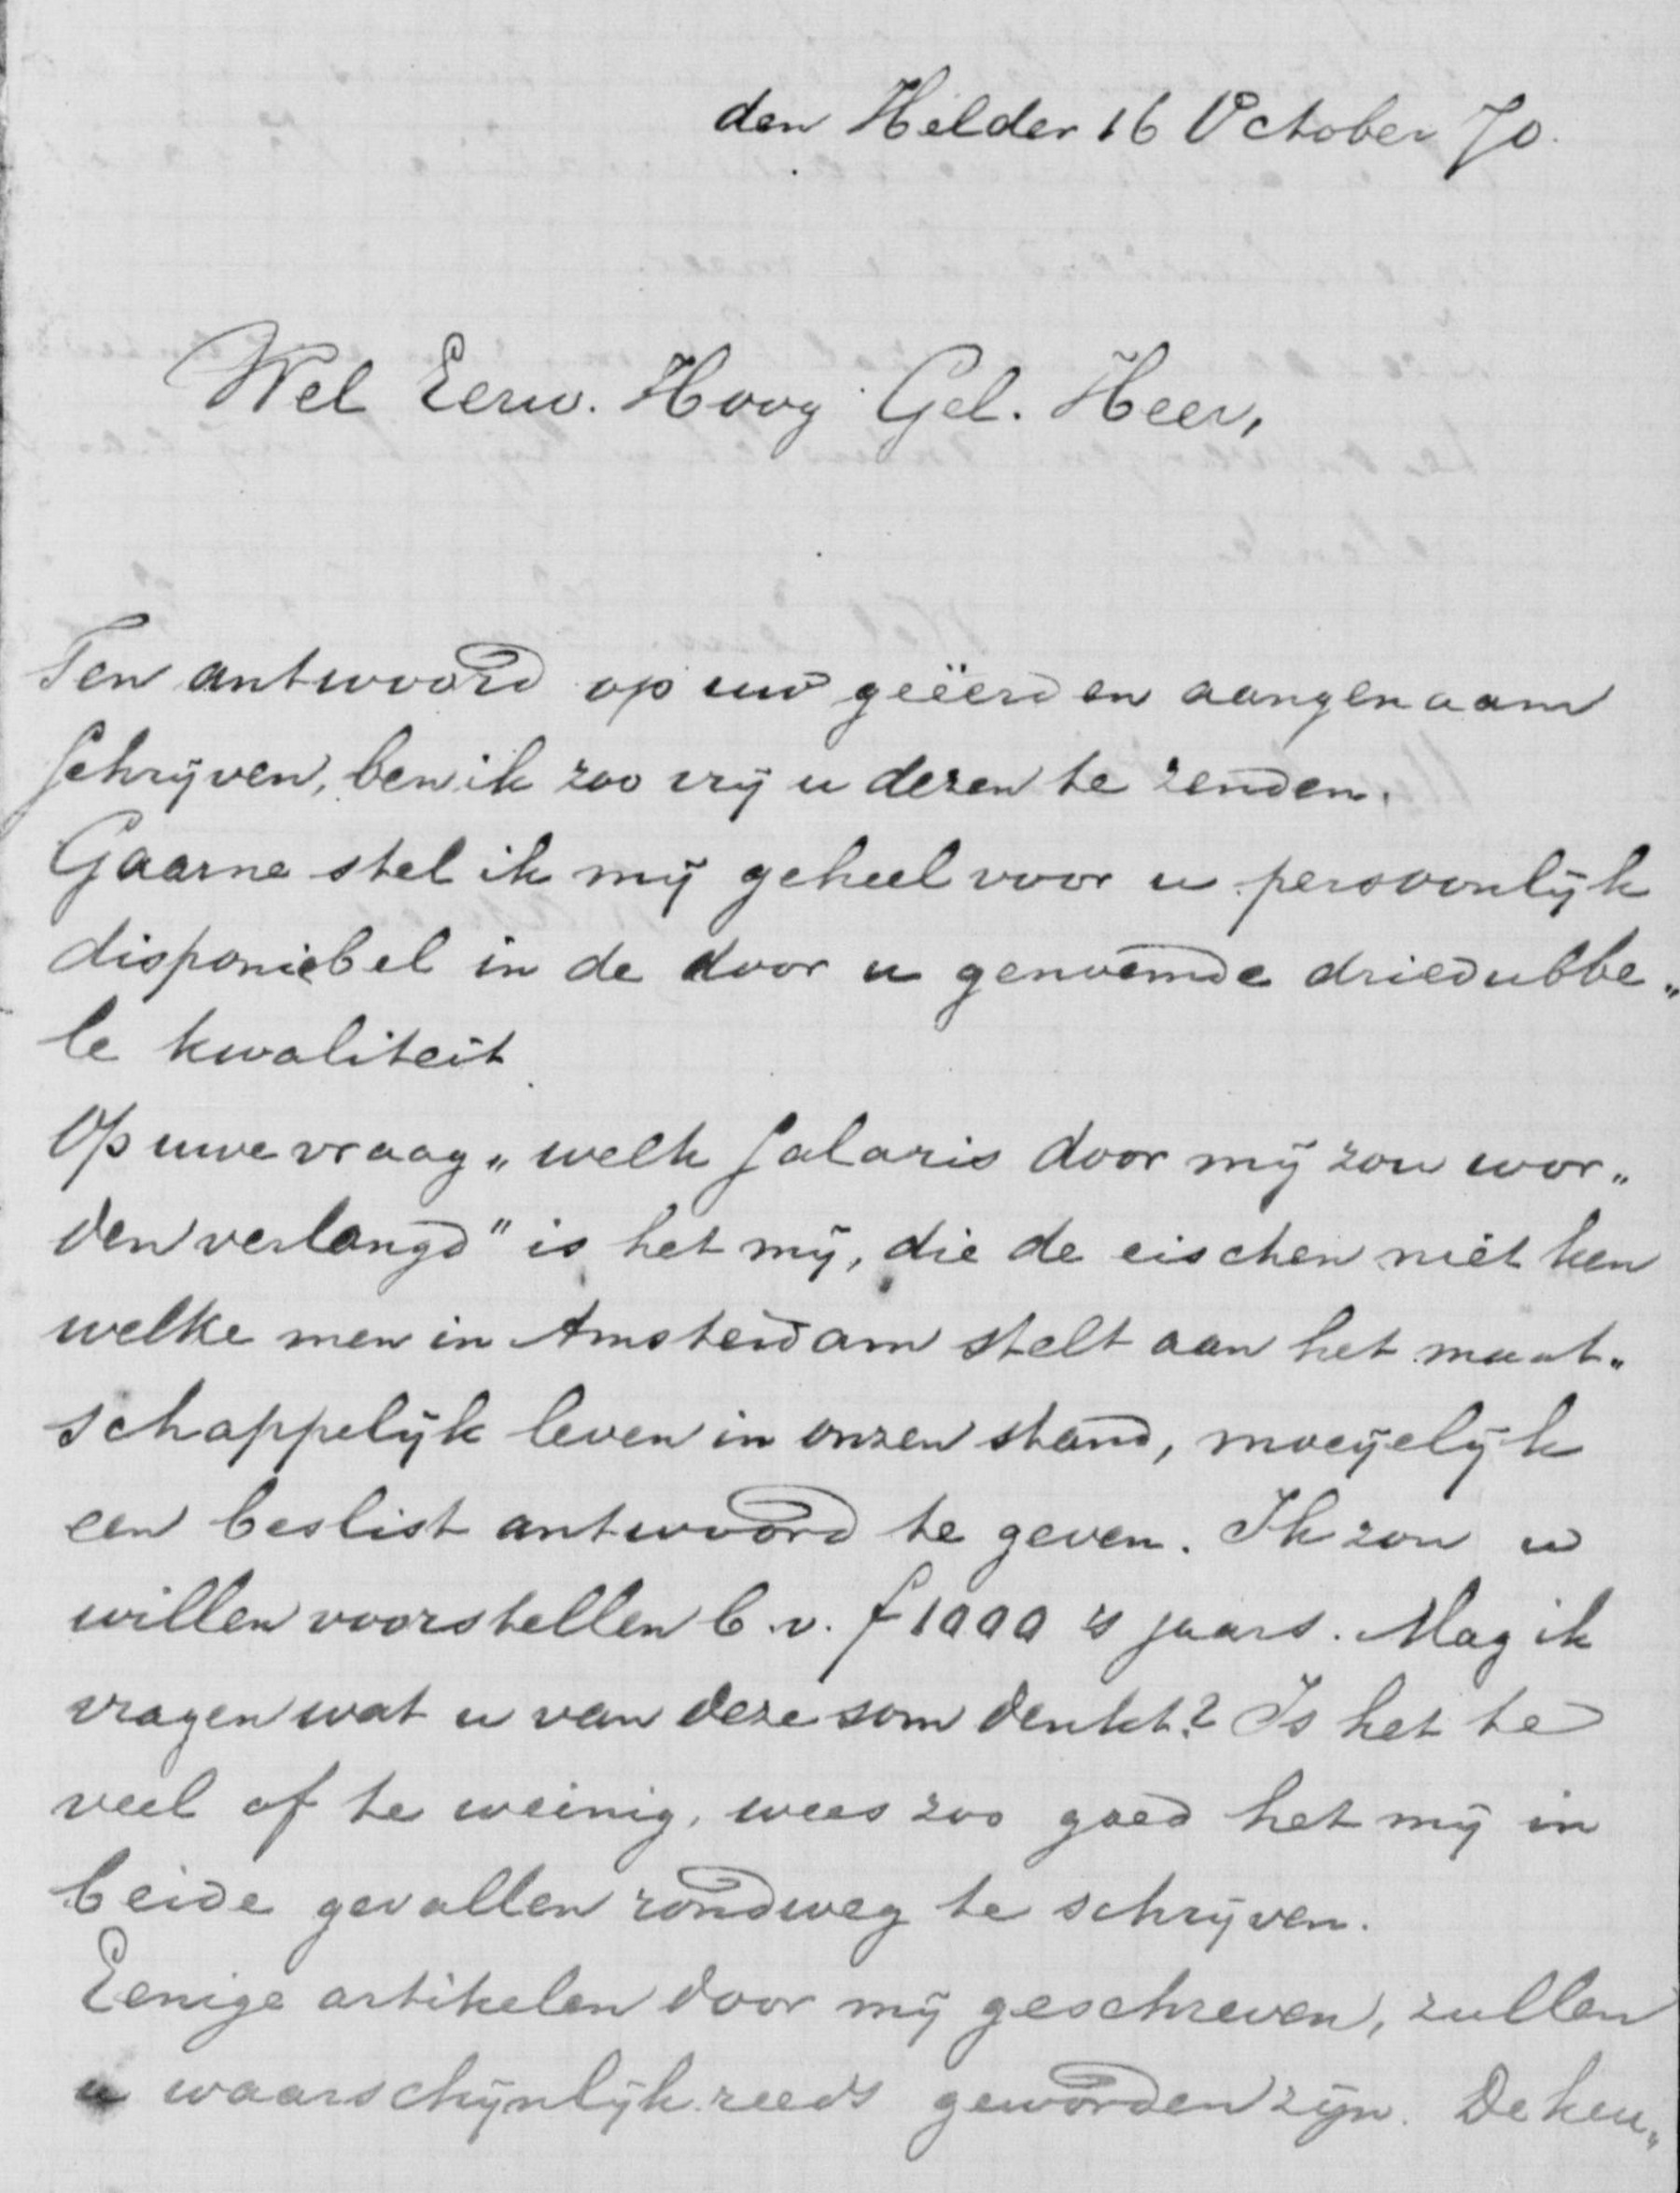 den Helder 16 October 70.
Wel Eerw. Hoog Gel. Heer,
Ten antwoord op uw geëerd en aangenaam
schrijven, ben ik zoo vrij u dezen te zenden.
Gaarne stel ik mij geheel voor u persoonlijk
disponiebel in de door u genoemde driedubbe„
le kwaliteit
Op uwe vraag „welk salaris door mij zou wor„
den verlangd" is het mij, die de eischen niet ken
welke men in Amsterdam stelt aan het maat„
schappelijk leven in onzen stand, moeijelijk
een beslist antwoord te geven. Ik zou u
willen voorstellen b.v. f 1000 's jaars. Mag ik
vragen wat u van deze som denkt? Is het te
veel of te weinig, wees zoo goed het mij in
beide gevallen rondweg te schrijven.
Eenige artikelen door mij geschreven, zullen
u waarschijnlijk reeds geworden zijn. De keu„